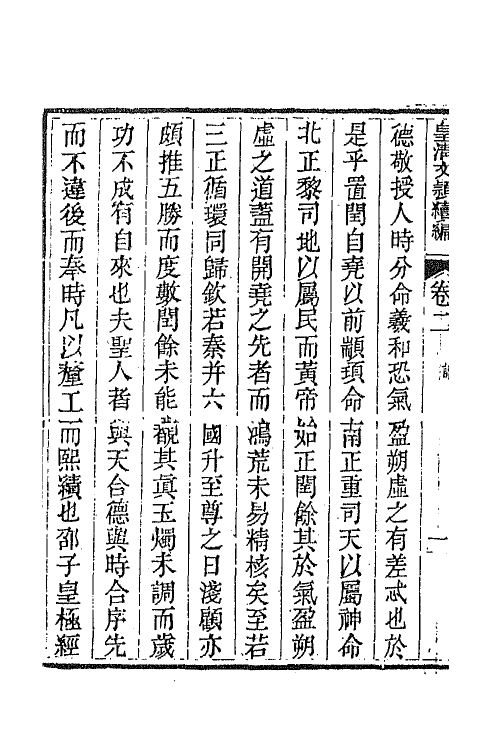 皇清文頴續編 卷二
德敬授人時分命羲和恐氣盈朔虛之有差忒也於
是乎置閏自堯以前顓頊命南正重司天以屬神命
北正黎司地以屬民而黃帝始正閏餘其於氣盈朔
虛之道蓋有開堯之先者而鴻荒未易精核矣至若
三正循環同歸欽若秦并六國升至尊之日淺顧亦
頗推五勝而度數閏餘未能覩其眞玉燭未調而歲
功不成有自來也夫聖人者與天合德與時合序先
而不違後而奉時凡以釐工而熙績也邵子皇極經